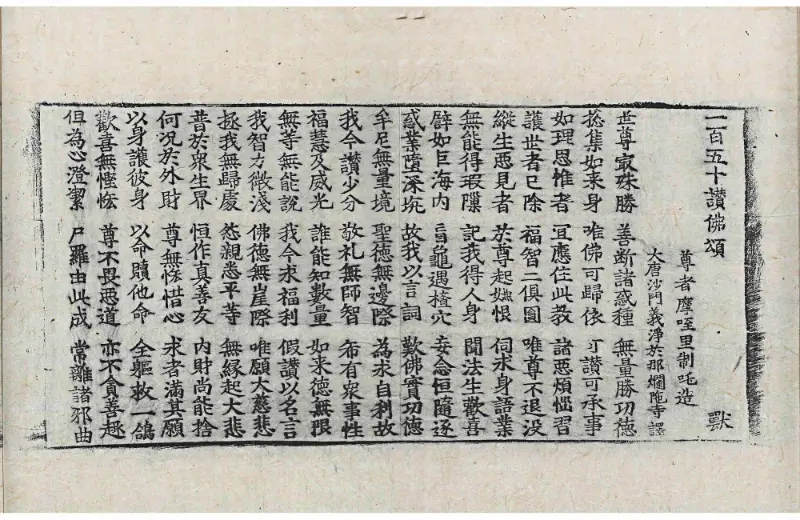 一百五十讚佛頌 獸
尊者摩咥里制吒造
大唐沙門義淨於那爛陁寺譯
世尊㝡殊勝 善断諸惑種 無量勝功德
捴集如来身 唯佛可歸依 可讃可承事
如理思惟者 冝應住此教 諸惡煩惱習
護世者已除 福智二俱圓 唯尊不退没
縱生惡見者 於尊起嫌恨 伺求身語業
無能得瑕隟 記我得人身 聞法生歡喜
譬如巨海内 盲龜遇楂穴 妄念恒隨逐
惑業墮深坑 故我以言詞 歎佛實功德
牟尼無量境 聖德無邊際 為求自利故
我今讃少分 敬礼無師智 希有衆事性
福慧及威光 誰能知數量 如来德無限
無等無能說 我今求福利 假讃以名言
我智力微淺 佛德無崖際 唯願大慈悲
拯我無歸處 怨親悉平等 無緣起大悲
普於衆生界 恒作真善友 内財尚能捨
何況於外財 尊無悋惜心 求者滿其願
以身護彼身 以命贖他命 全軀救一鴿
歡喜無慳悋 尊不畏惡道 亦不貪善趣
但為心澄潔 尸羅由此成 常離諸邪曲